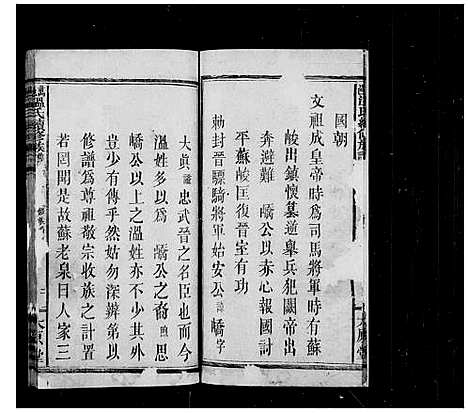 國朝
文祖成皇帝時為司馬將軍時有蘇
峻出鎮懷墓逆舉兵犯闕帝出
奔避難 嶠公以赤心報國討
平蘇峻匡復晉室有功
勅封晉驃騎將軍始安公諱嶠字
大眞諡忠武晉之名臣也而今
溫姓多以為 嶠公之裔煦思
嶠公以上之溫姓亦不少其外
豈少有傳乎然姑勿深辨第以
修譜為尊祖敬宗收族之計置
若罔聞是故蘇老泉曰人家三